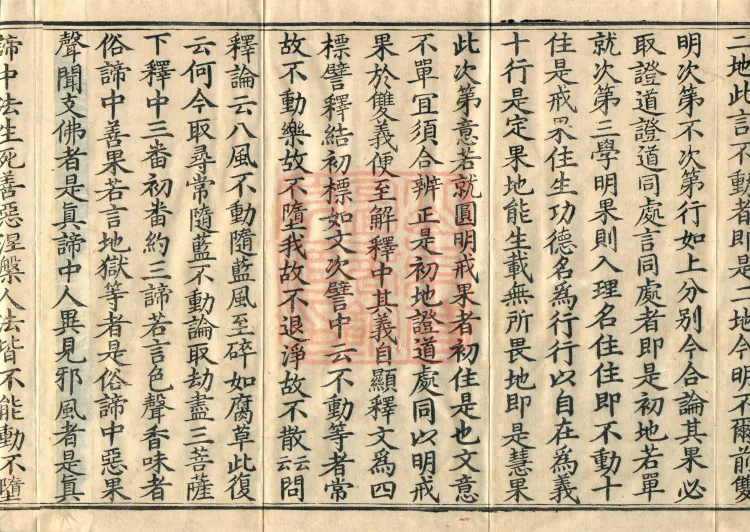 二地此言不動者即是二地今明不爾前雙
明次第不次第行如上分別今合論其果必
取證道證道同處言同處者即是初地若單
就次第三學明果則入理名住住即不動十
住是戒果住生功德名為行行以自在為義
十行是定果地能生載無所畏地即是慧果
此次第意若就圓明戒果者初住是也文意
不單宜須合辨正是初地證道處同以明戒
果於雙義便至解釋中其義自顯釋文為四
標譬釋結初標如文次譬中云不動等者常
故不動樂故不墮我故不退淨故不散云云問
釋論云八風不動隨藍風至碎如腐草此復
云何今取尋常隨藍不動論取劫盡三菩薩
下釋中三番初番約三諦若言色聲香味者
俗諦中善果若言地獄等者是俗諦中惡果
聲聞支佛者是眞諦中人異見邪風者是眞
諦中法生死善惡涅槃人法皆不能動不墮